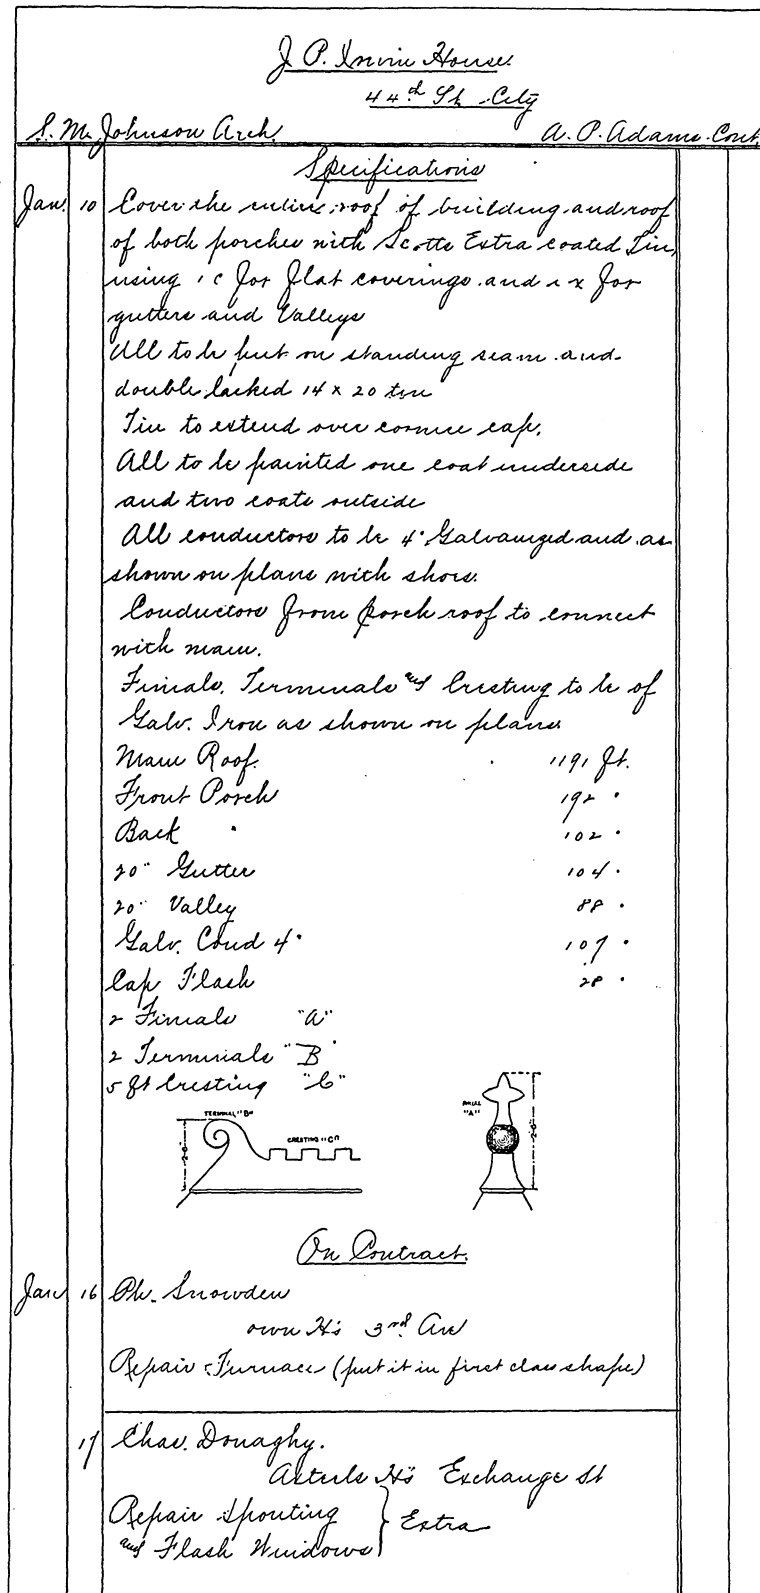 J P. Irwin House.
44th St. City
S. M. Johnson Arch. A. P. Adams. Cont.
Specifications
Jan. 10 Cover the entire roof of building and roof
of both porches with Scotts Extra coated Tin,
using 1c for flat coverings and 1x for
gutters and Valleys
All to be put on standing seam and
double locked 14 x 20 tin
Tin to extend over cornice cap.
All to be painted one coat underside
and two coats outside
All conductors to be 4" Galvanized and as
shown on plans with shoes.
Conductors from porch roof to connect
with main.
Finials, Terminals and Cresting to be of
Galv. Iron as shown on plans
Main Roof. 1191 ft.
Front Porch 192 "
Back " 102 "
20" Gutter 104 "
20" Valley 88 "
Galv. Cond 4" 107 "
Cap Flash 28 "
2 Finials "A"
2 Terminals "B"
5 ft Cresting "C"
TERMINAL "B"
CRESTING "C"
FINIAL
"A"
On Contract.
Jan 16 Ph. Snowden
own Hs 3rd Ave
Repair Furnace (put it in first class shape)
17 Chas. Donaghy.
Hs Exchange St
Repair Spouting
and Flash Windows } Extra